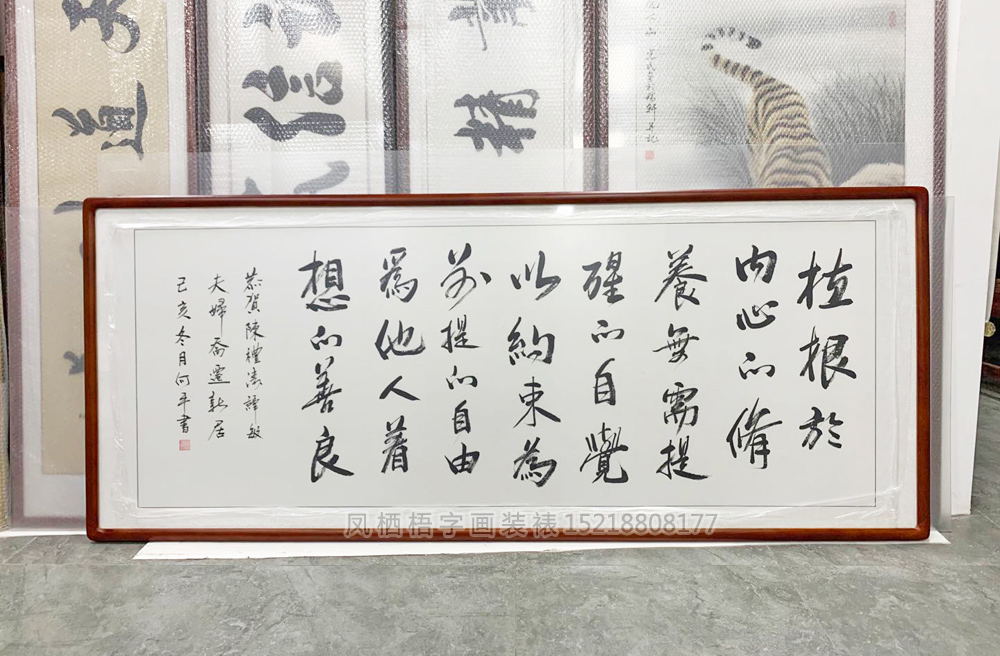 植根於
内心的脩
養無需提
醒的自覺
以約束為
前提的自由
爲他人着
想的善良
恭賀陳禮濤譚敏
夫婦喬遷新居
己亥冬月何平書
道
信
精
凤栖梧字画装裱15218808177